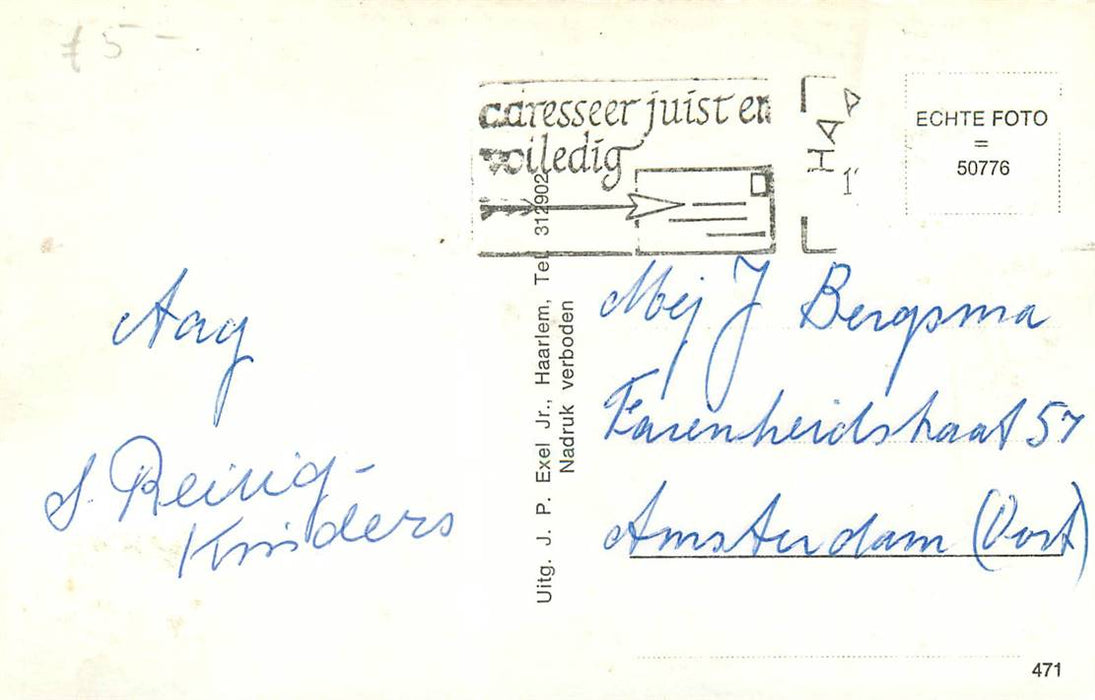 £5-
adresseer juist en
volledig
HA
ECHTE FOTO
=
50776
Uitg. J. P. Exel Jr., Haarlem, Tel. 312902
Nadruk verboden
Aag
S. Reinig-
Kninders
Mej J Bergsma
Farenheidstraat 57
Amsterdam (Oost)
471